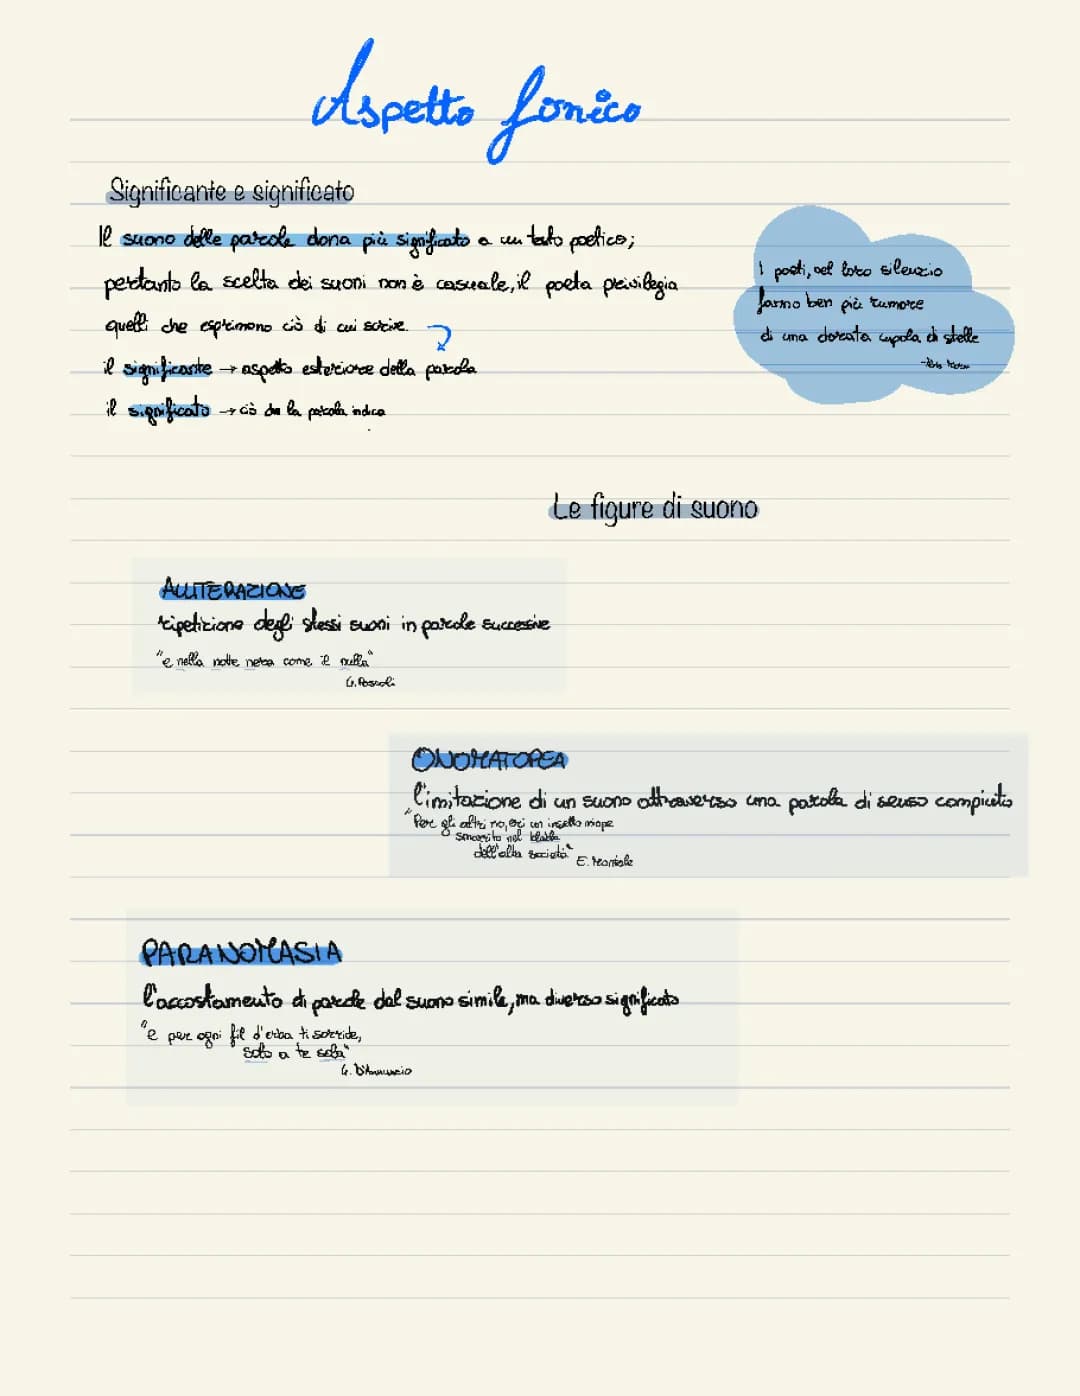 Aspetto fonico
Significante e significato
Il suono delle parole dona più significato a un testo poetico;
pertanto la scelta dei suoni non è casuale, il poeta privilegia
quelli che esprimono ciò di cui scrive.
il significante → aspetto esteriore della parola
il significato → ciò che la parola indica
I poeti, nel loro silenzio
fanno ben più rumore
di una dorata cupola di stelle
Le figure di suono
ALLITERAZIONE
ripetizione degli stessi suoni in parole successive
"e nella notte nera come il nulla"
G. Pascoli
ONOMATOPEA
l'imitazione di un suono attraverso una parola di senso compiuto
"Per gli altri no, eri un insetto miope
smarrito nel blabla
dell'alta società"
E. Montale
PARANOMASIA
l'accostamento di parole dal suono simile, ma diverso significato
"e per ogni fil d'erba ti sorride,
solo a te sola"
G. D'Annunzio